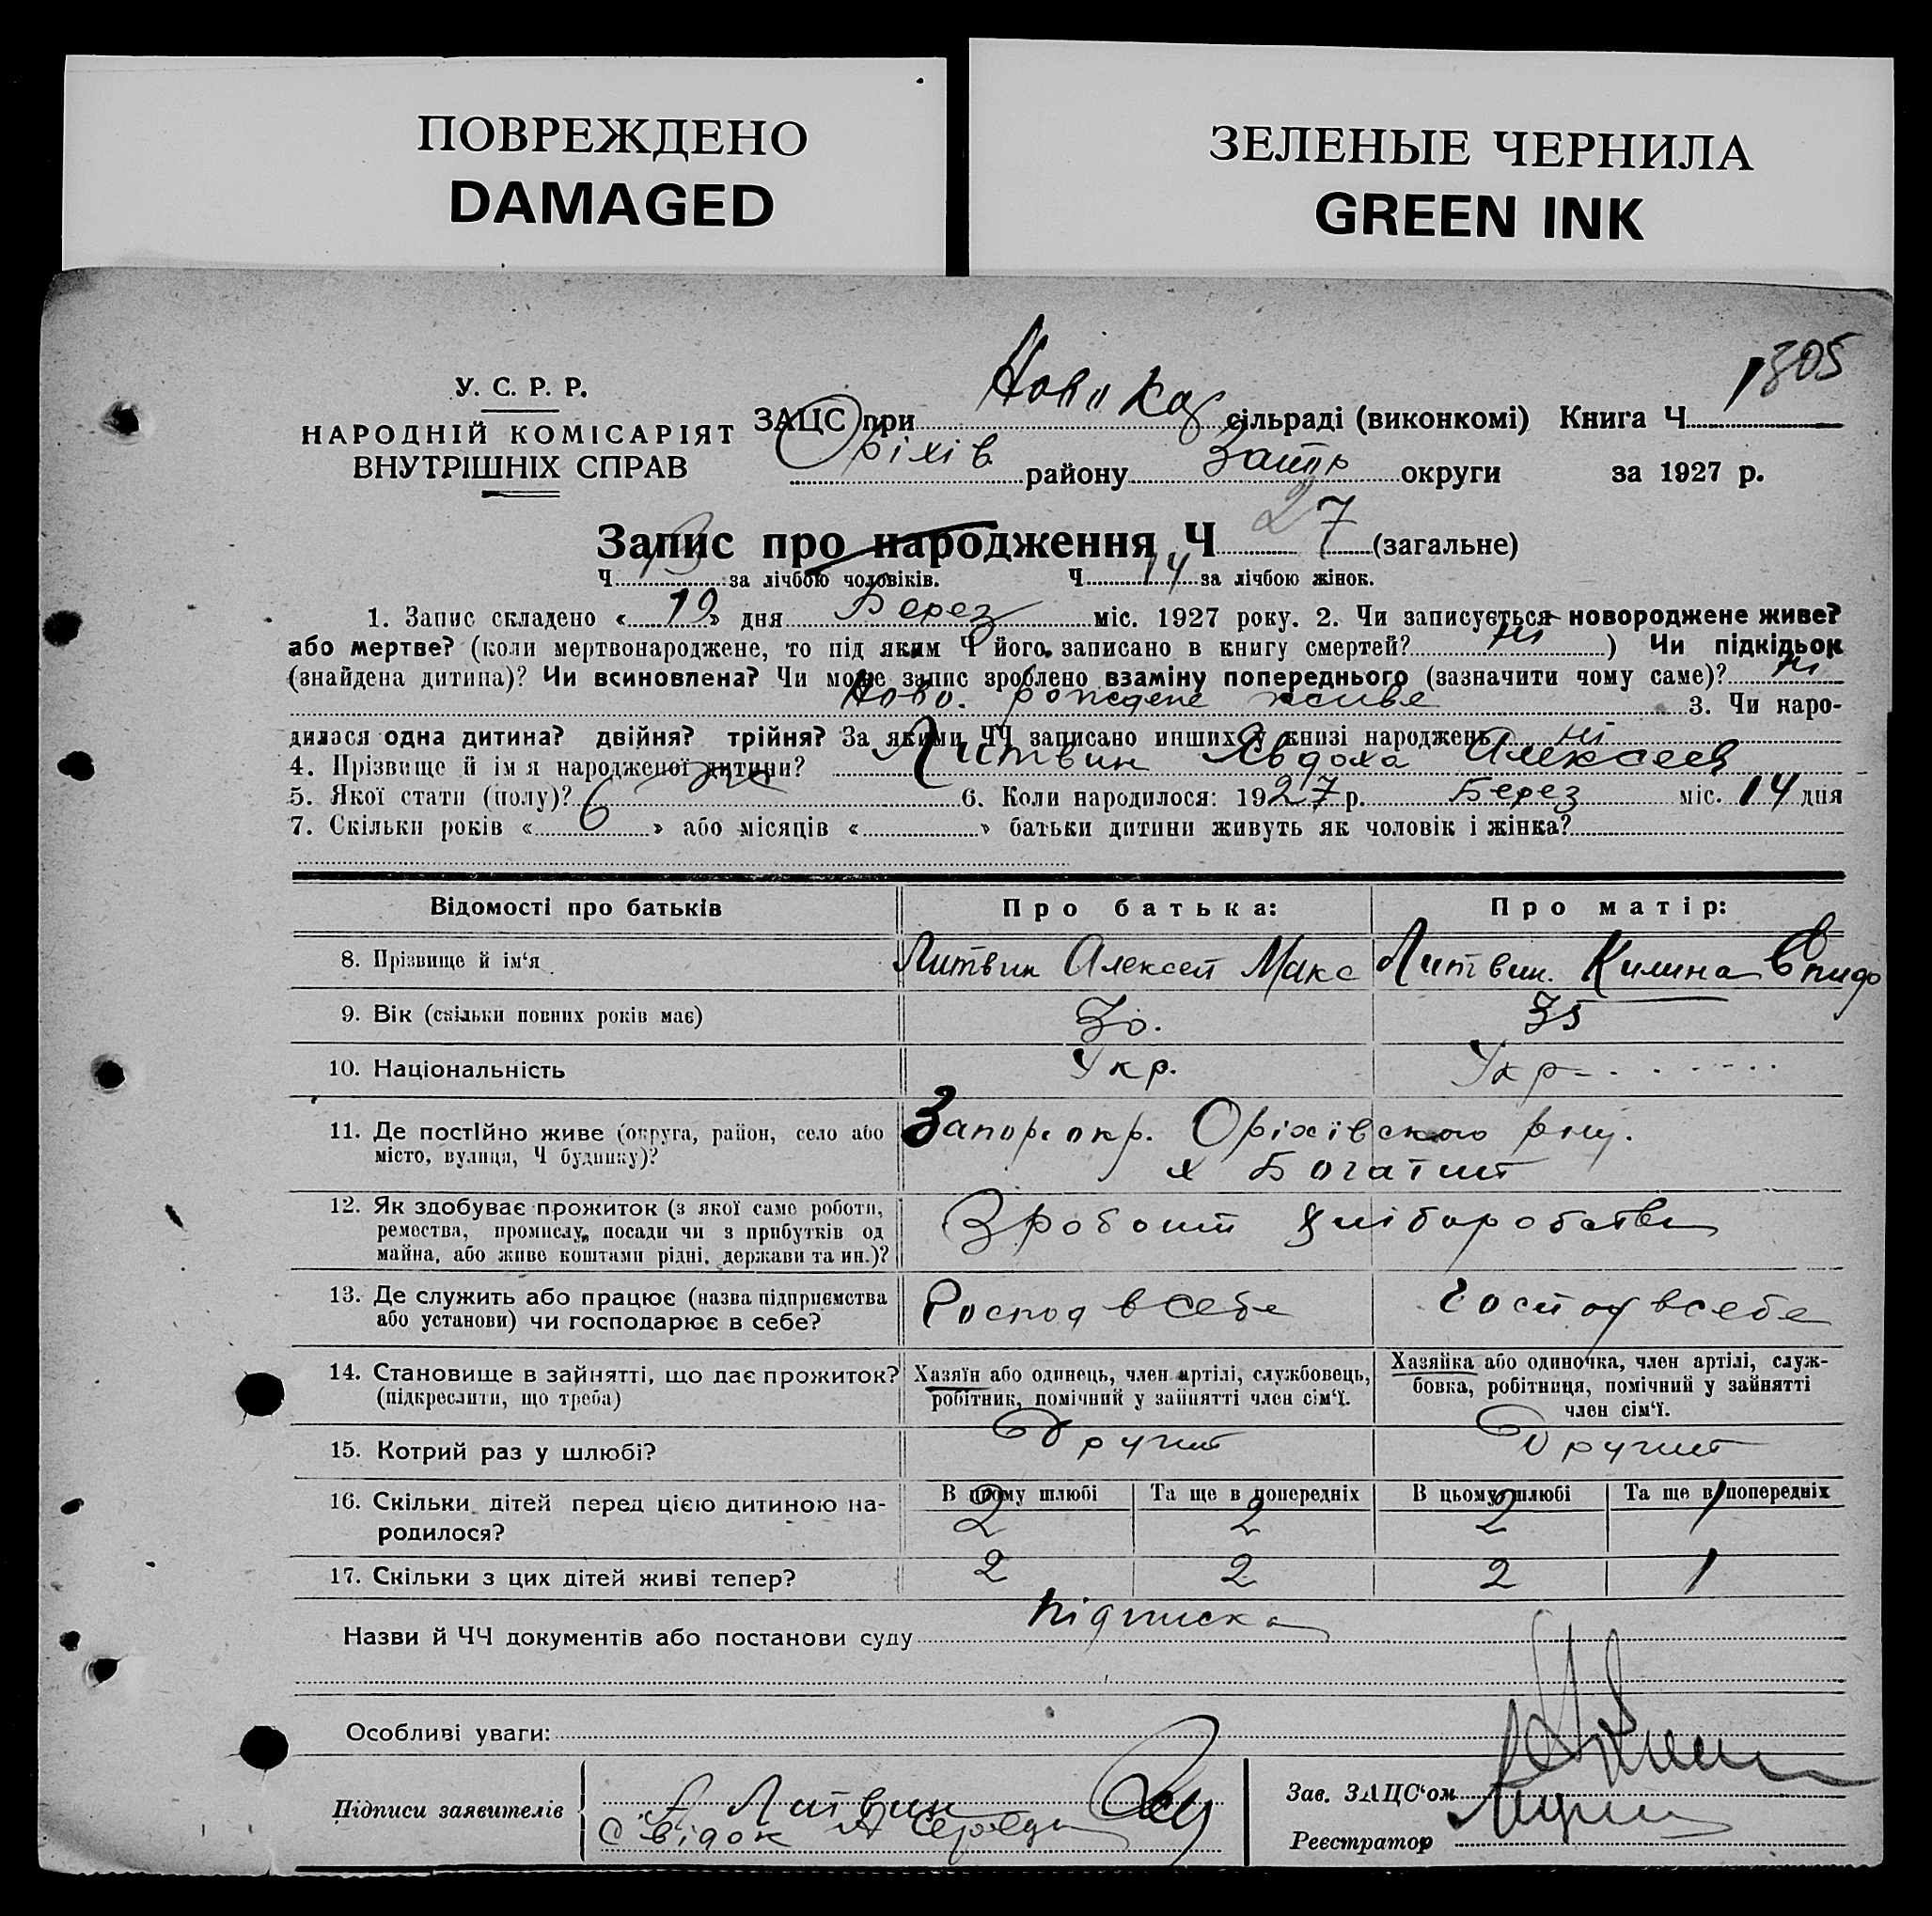 ПОВРЕЖДЕНО
DAMAGED
ЗЕЛЕНЫЕ ЧЕРНИЛА
GREEN INK
1805
У. С. Р. Р.
НАРОДНІЙ КОМІСАРІЯТ
ВНУТРІШНІХ СПРАВ
ЗАЦС при сільраді (виконкомі) Книга Ч
Оріхів району Запор округи за 1927 р.
Запис про народження Ч 27 (загальне)
Ч 13 за лічбою чоловіків. Ч 14 за лічбою жінок.
1. Запис складено « 19 » дня Берез міс. 1927 року. 2. Чи записується новороджене живе?
або мертве? (коли мертвонароджене, то під яким Ч його записано в книгу смертей? ні ) Чи підкідьок
(знайдена дитина)? Чи всиновлена? Чи може запис зроблено взаміну попереднього (зазначити чому саме)? ні
Ново. рождене живе 3. Чи наро-
дилася одна дитина? двійня? трійня? За якими ЧЧ записано инших у книзі народжень ні
4. Прізвище й ім'я народженої дитини? Литвин Явдоха Алексеев
5. Якої стати (полу)? 6. Коли народилося: 1927 р. Берез міс. 14 дня
7. Скільки років « 6 » або місяців « » батьки дитини живуть як чоловік і жінка?
Відомості про батьків Про батька: Про матір:
8. Прізвище й ім'я Литвин Алексей Макс Литвин. Килина Спидо
9. Вік (скільки повних років має) 30. 35
10. Національність Укр. Укр
11. Де постійно живе (округа, район, село або
місто, вулиця, Ч будинку)? Запор. окр. Оріхівского рну.
х Богатий
12. Як здобуває прожиток (з якої саме роботи,
ремества, промислу, посади чи з прибутків од
майна, або живе коштами рідні, держави та ин.)? З роботи хліборобства
13. Де служить або працює (назва підприємства
або установи) чи господарює в себе? Господ в себе Господ в себе
14. Становище в зайнятті, що дає прожиток?
(підкреслити, що треба)
Хазяїн або одинець, член артілі, службовець,
робітник, помічний у зайнятті член сім'ї.
Хазяйка або одиночка, член артілі, служ-
бовка, робітниця, помічний у зайнятті
член сім'ї.
15. Котрий раз у шлюбі? Другий Другий
16. Скільки дітей перед цією дитиною на-
родилося?
В цьому шлюбі Та ще в попередніх В цьому шлюбі Та ще в попередніх
2 2 2 1
17. Скільки з цих дітей живі тепер? 2 2 2 1
Назви й ЧЧ документів або постанови суду підписка
Особливі уваги:
Підписи заявителів А Литвин
Свідок
Зав. ЗАЦС'ом
Реєстратор